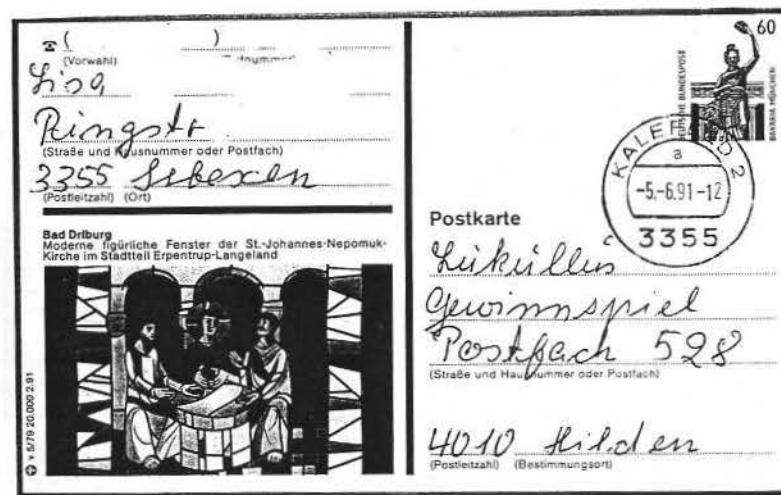 ☎ ( )
(Vorwahl)
Lisa
Ringstr
(Straße und Hausnummer oder Postfach)
3355 Sebexen
(Postleitzahl) (Ort)
Bad Driburg
Moderne figürliche Fenster der St.-Johannes-Nepomuk-
Kirche im Stadtteil Erpentrup-Langeland
v 5/79 20.000 2.91
60
DEUTSCHE BUNDESPOST
BAVARIA MÜNCHEN
KALEFELD 2
a
-5.-6.91-12
3355
Postkarte
Lukullus
Gewinnspiel
Postfach 528
(Straße und Hausnummer oder Postfach)
4010 Hilden
(Postleitzahl) (Bestimmungsort)